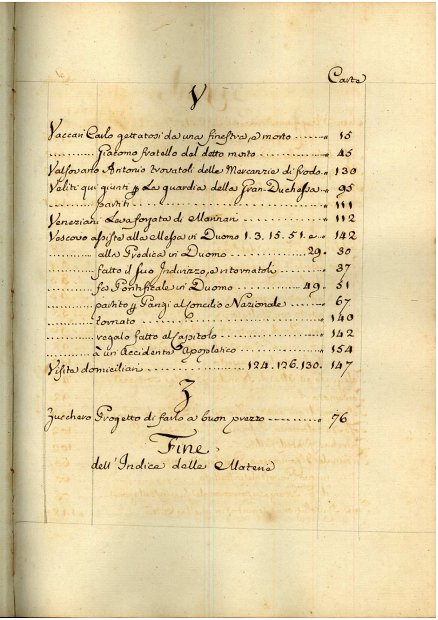 Carte
V
Vaccari Carlo gettatosi da una finestra, e morto .......... 15
.......... Giacomo fratello del detto morto .......... 45
Valsovano Antonio trovatoli delle Mercanzie di frodo .. 130
Veliti qui giunti p La guardia della Gran-Duchessa .. 95
.......... partiti .......... 111
Veneziani Lava forzata di Mannari .......... 112
Vescovo assiste alla Messa in Duomo 1. 3. 15. 51. e .. 142
.......... alla Predica in Duomo .......... 29. 30
.......... fatto il suo Indirizzo, e ritornatoli .......... 37
.......... fa Pontificale in Duomo .......... 49. 51
.......... partito p Parigi al Concilio Nazionale .......... 67
.......... tornato .......... 140
.......... regalo fatto al Capitolo .......... 142
.......... à un Accidente Apopletico .......... 154
Visite domiciliari .......... 124. 126. 130. 147
Z
Zucchero Progetto di farlo a buon prezzo .......... 76
Fine
dell'Indice delle Materie